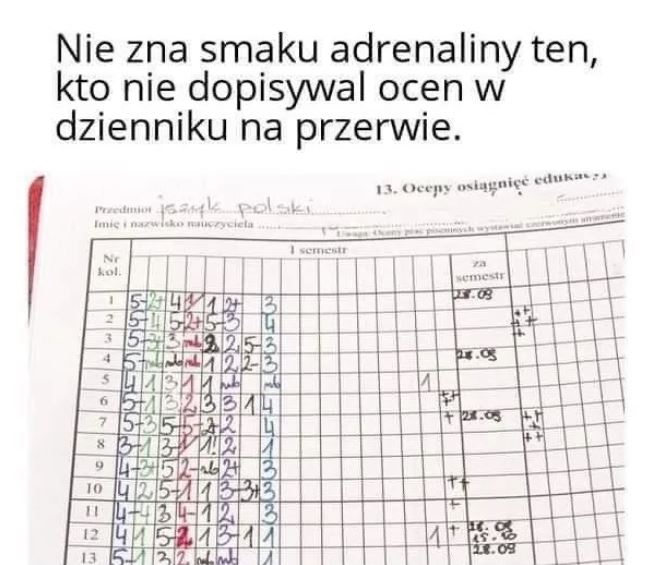 Nie zna smaku adrenaliny ten,
kto nie dopisywal ocen w
dzienniku na przerwie.
13. Oceny osiągnięć edukac
Przedmiot język polski
Imię i nazwisko nauczyciela
Uwaga: Oceny prac pisemnych wystawiać czerwonym
Nr kol. I semestr za semestr
1 5- 2+ 4 1 1 2+ 3 28.09
2 5- 4 5 2+ 5- 3 4 + + + +
3 5- 3 2 5- 3
4 5- nb nb nb 1 2 2- 3 28.09
5 4 1 3 1 1 nb nb 1
6 5- 1 3 2 3 3 1 4 + +
7 5- 3 5 5- 2 4 + 28.09
8 3- 1 3 1! 2 1
9 4- 3+ 5 2- nb 2+ 3
10 4 2 5- 1 1 3- 3+ 3 + +
11 4- 4 3 4- 1 2 3 +
12 4 1 5 2 1 3- 1 1 1 + 28.09 15.10
13 5- 1 3 2 nb nb 1 28.09